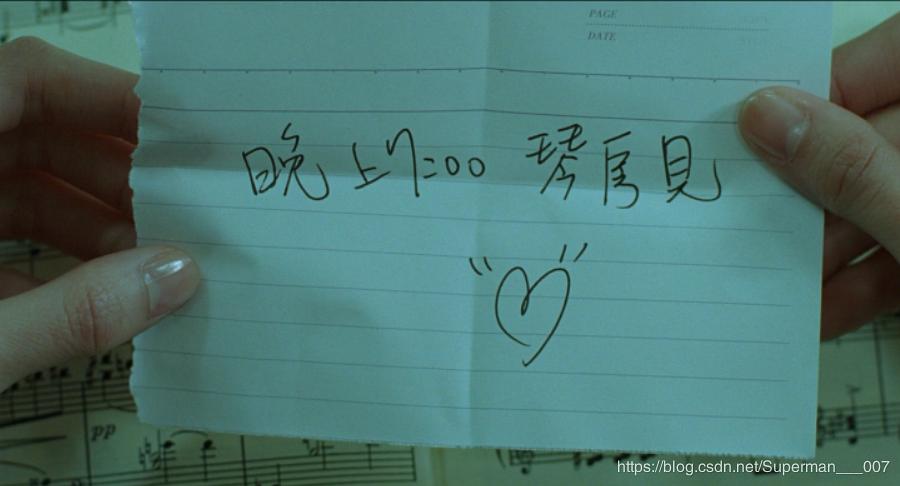 PAGE
DATE
晚上7:00 琴房見
pp
https://blog.csdn.net/Superman___007